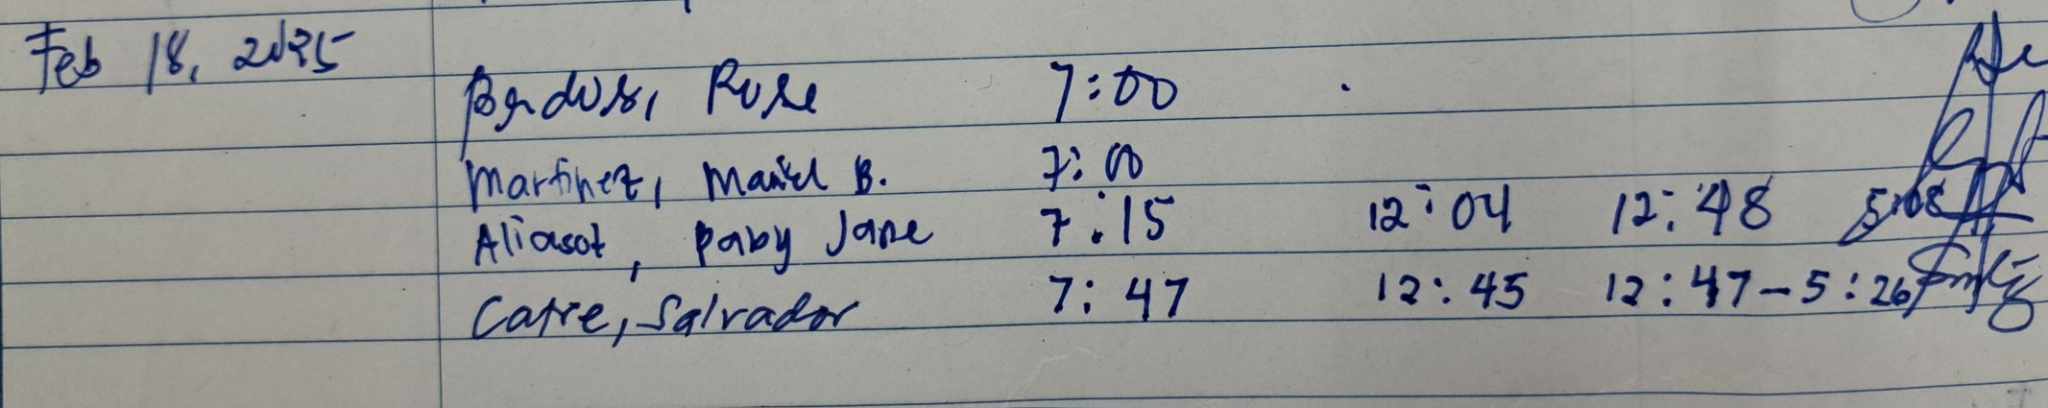 Feb 18, 2025
Rose 7:00
Martinez, B. 7:00
Aliasot, Baby Jane 7:15 12:04 12:48 5:08
Catre, Salvador 7:47 12:45 12:47-5:26